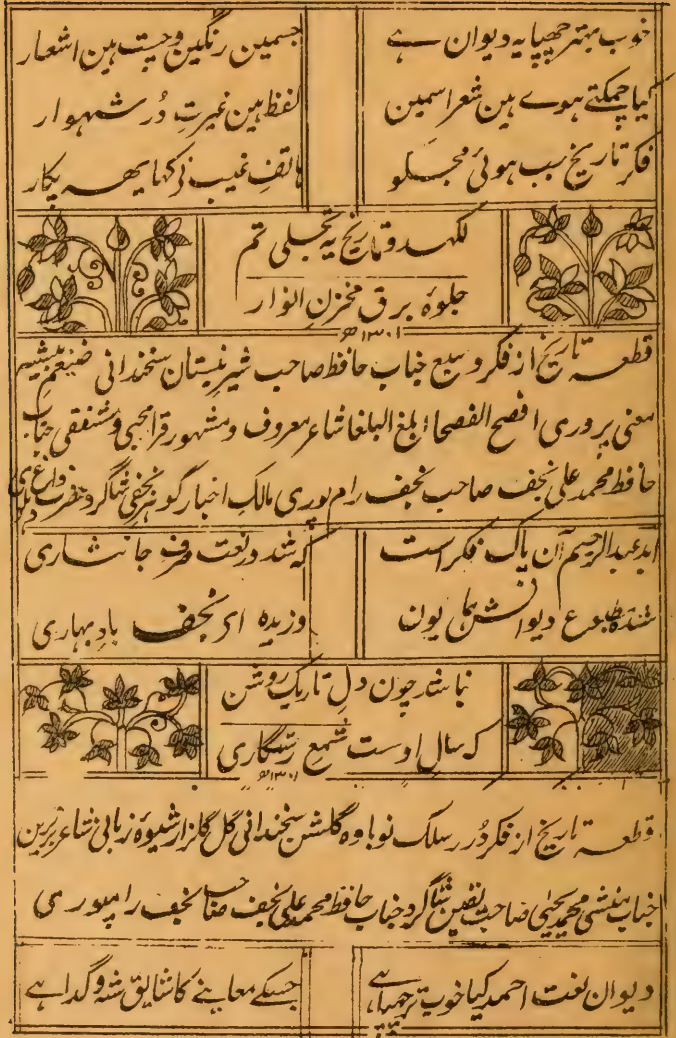 خوب بہتر چھپا یہ دیوان ہے
جسمین رنگین و چست ہین اشعار
کیا چمکتے ہوے ہین شعر اسمین
لفظ ہین غیرتِ دُر شہوار
فکر تاریخ جب ہوئی مجکو
ہاتفِ غیب نے کہا یھہ پکار
لکھدو تاریخ یہ تجلی تم
جلوۂ برق مخزن الانوار
۱۳۰۱ھ
قطعہ تاریخ از فکر وسیع جناب حافظ صاحب شیر نیستان سخندانی ضیغم بیشہ
معنی پروری افصح الفصحا ابلغ البلغا شاعر معروف و مشہور قرا محبی و مشفقی جناب
حافظ محمد علی نجف صاحب نجف رام پوری مالک اخبار گوہر نجفی شاگرد حضرت داغ دہلوی
عبدالرحیم آن پاک فکر است
کہ شد در نعت صرف جانثاری
شدہ مطبوع دیوانش ہمایون
وزیدہ ای نجف باد بہاری
نباشد چون دلِ تاریک روشن
کہ سال اوست شمع رستگاری
۱۳۰۱ھ
قطعہ تاریخ از فکر دُرر سلک نوباوہ گلشن سخندانی گل گلزار شیوہ زبانی شاعر برترین
جناب منشی محمد یحیٰی صاحب شاگرد جناب حافظ محمد علی نجف صاحب نجف رامپوری
دیوان نعت احمد کیا خوب تر چھپا ہے
جسکے معاینے کا شایق شہ و گدا ہے